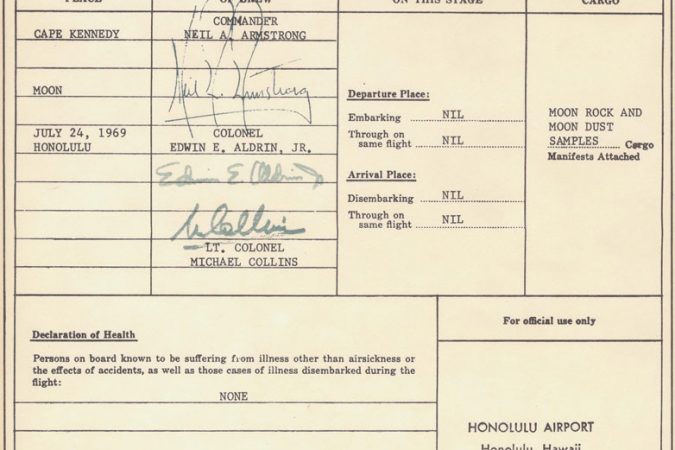 PLACE
OF CREW
ON THIS STAGE
CARGO
COMMANDER
CAPE KENNEDY
NEIL A. ARMSTRONG
Neil A. Armstrong
MOON
Departure Place:
Embarking NIL
Through on NIL
same flight
MOON ROCK AND
MOON DUST
SAMPLES Cargo
Manifests Attached
JULY 24, 1969
HONOLULU
COLONEL
EDWIN E. ALDRIN, JR.
Edwin E Aldrin Jr
Arrival Place:
Disembarking NIL
Through on NIL
same flight
M Collins
LT. COLONEL
MICHAEL COLLINS
Declaration of Health
Persons on board known to be suffering from illness other than airsickness or
the effects of accidents, as well as those cases of illness disembarked during the
flight:
NONE
For official use only
HONOLULU AIRPORT
Honolulu, Hawaii